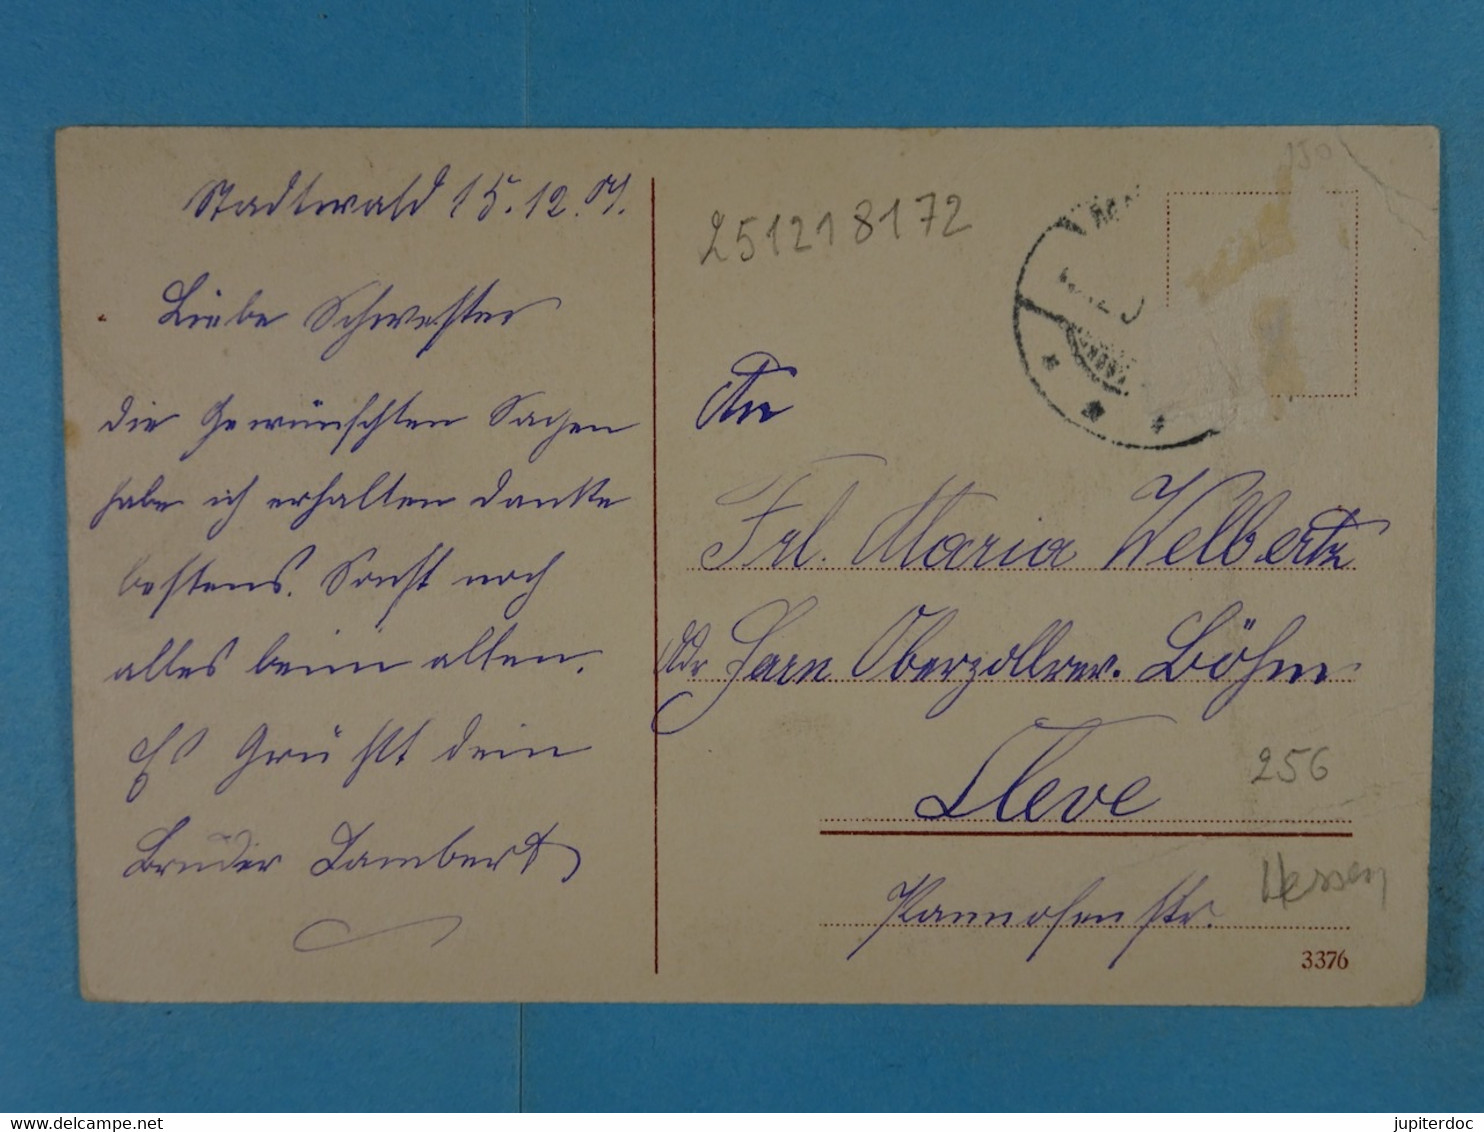 Stadtwald 15.12.07.
Liebe Schwester
die Gewünschten Sachen
habe ich erhalten danke
bestens. Sonst noch
alles beim alten.
Es Grüßt dein
Bruder Lambert
251218172
An
Frl. Maria Welbertz
Adr Herrn Oberzollrev. Böhm
Cleve
256
Hessen
3376
delcampe.net
jupiterdoc